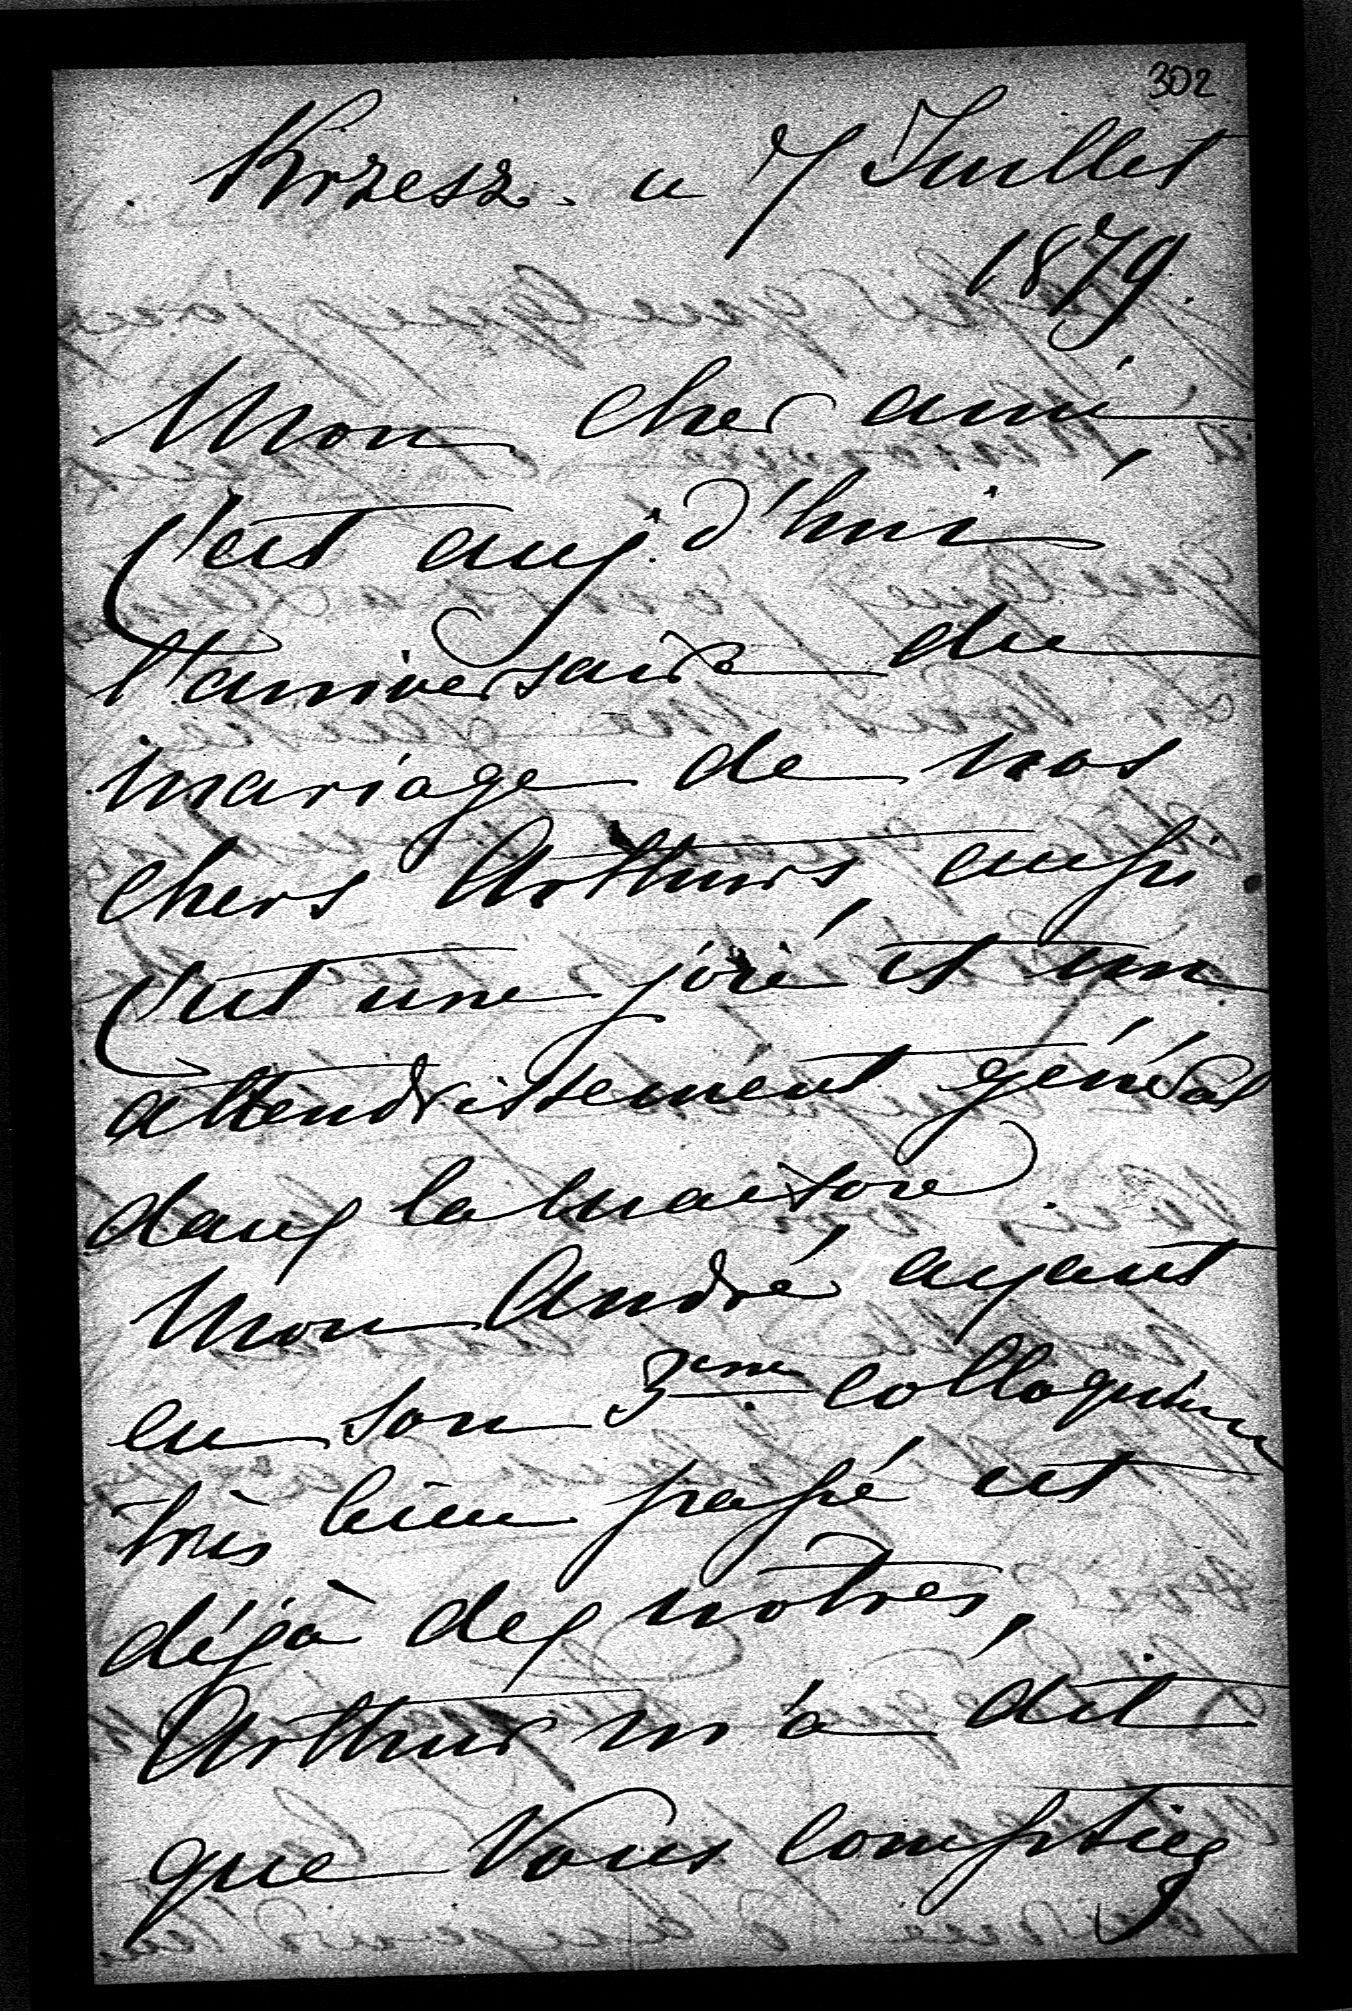 302
Krzesz. u 7 Juillet
1879.
Mon cher ami,
C'est auj. d'hui
l'aniversaire du
mariage de nos
chers Arthurs, aussi
c'est une joie et un
attendrissement général
dans la maison.
Mon André, ayant
eu son 3eme colloquium
très bien passé est
déjà des nôtres,
Arthur m'a dit
que Vous comptiez